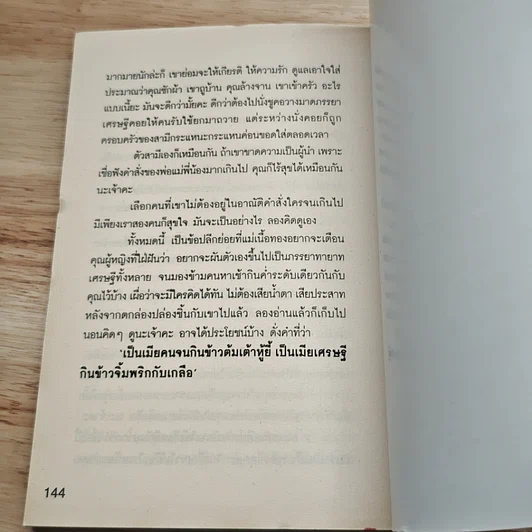 มากมายนักล่ะก็ เขาย่อมจะให้เกียรติ ให้ความรัก ดูแลเอาใจใส่
ประมาณว่าคุณซักผ้า เขาถูบ้าน คุณล้างจาน เขาเข้าครัว อะไร
แบบเนี้ยะ มันจะดีกว่ามั้ยคะ ดีกว่าต้องไปนั่งชูคอวางมาดภรรยา
เศรษฐีคอยให้คนรับใช้ยกมาถวาย แต่ระหว่างนั่งคอยก็ถูก
ครอบครัวของสามีกระแหนะกระแหนค่อนขอดใส่ตลอดเวลา
ตัวสามีเองก็เหมือนกัน ถ้าเขาขาดความเป็นผู้นำ เพราะ
เชื่อฟังคำสั่งของพ่อแม่พี่น้องมากเกินไป คุณก็ไร้สุขได้เหมือนกัน
นะเจ้าคะ
เลือกคนที่เขาไม่ต้องอยู่ในอาณัติคำสั่งใครจนเกินไป
มีเพียงเราสองคนก็สุขใจ มันจะเป็นอย่างไร ลองคิดดูเอง
ทั้งหมดนี้ เป็นข้อปลีกย่อยที่แม่เนื้อทองอยากจะเตือน
คุณผู้หญิงที่ใฝ่ฝันว่า อยากจะผันตัวเองขึ้นไปเป็นภรรยาทายาท
เศรษฐีทั้งหลาย จนมองข้ามคนหาเช้ากินค่ำระดับเดียวกันกับ
คุณไว้บ้าง เผื่อว่าจะมีใครคิดได้ทัน ไม่ต้องเสียน้ำตา เสียประสาท
หลังจากตกล่องปล่องชิ้นกับเขาไปแล้ว ลองอ่านแล้วก็เก็บไป
นอนคิดๆ ดูนะเจ้าคะ อาจได้ประโยชน์บ้าง ดั่งคำที่ว่า
'เป็นเมียคนจนกินข้าวต้มเต้าหู้ยี้ เป็นเมียเศรษฐี
กินข้าวจิ้มพริกกับเกลือ'
144